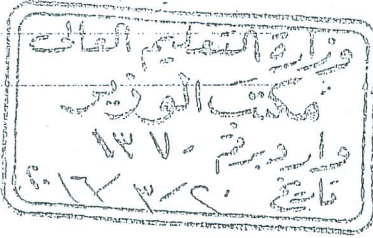 وزارة التعليم العالى
مكتب الوزير
وارد برقم ١٣٧٠
تاريخ ٢٠١٦/٣/٢٠